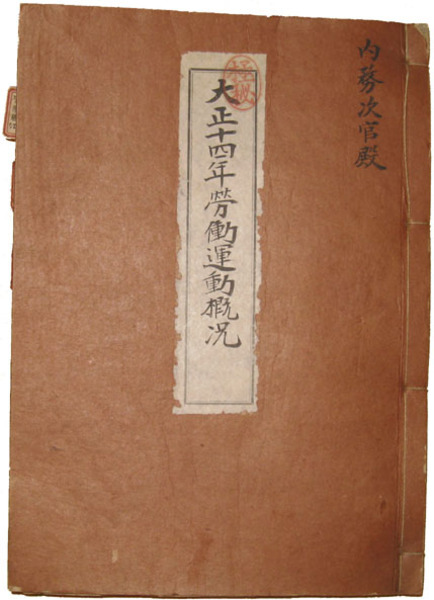 内務次官殿
大正十四年勞働運動概況